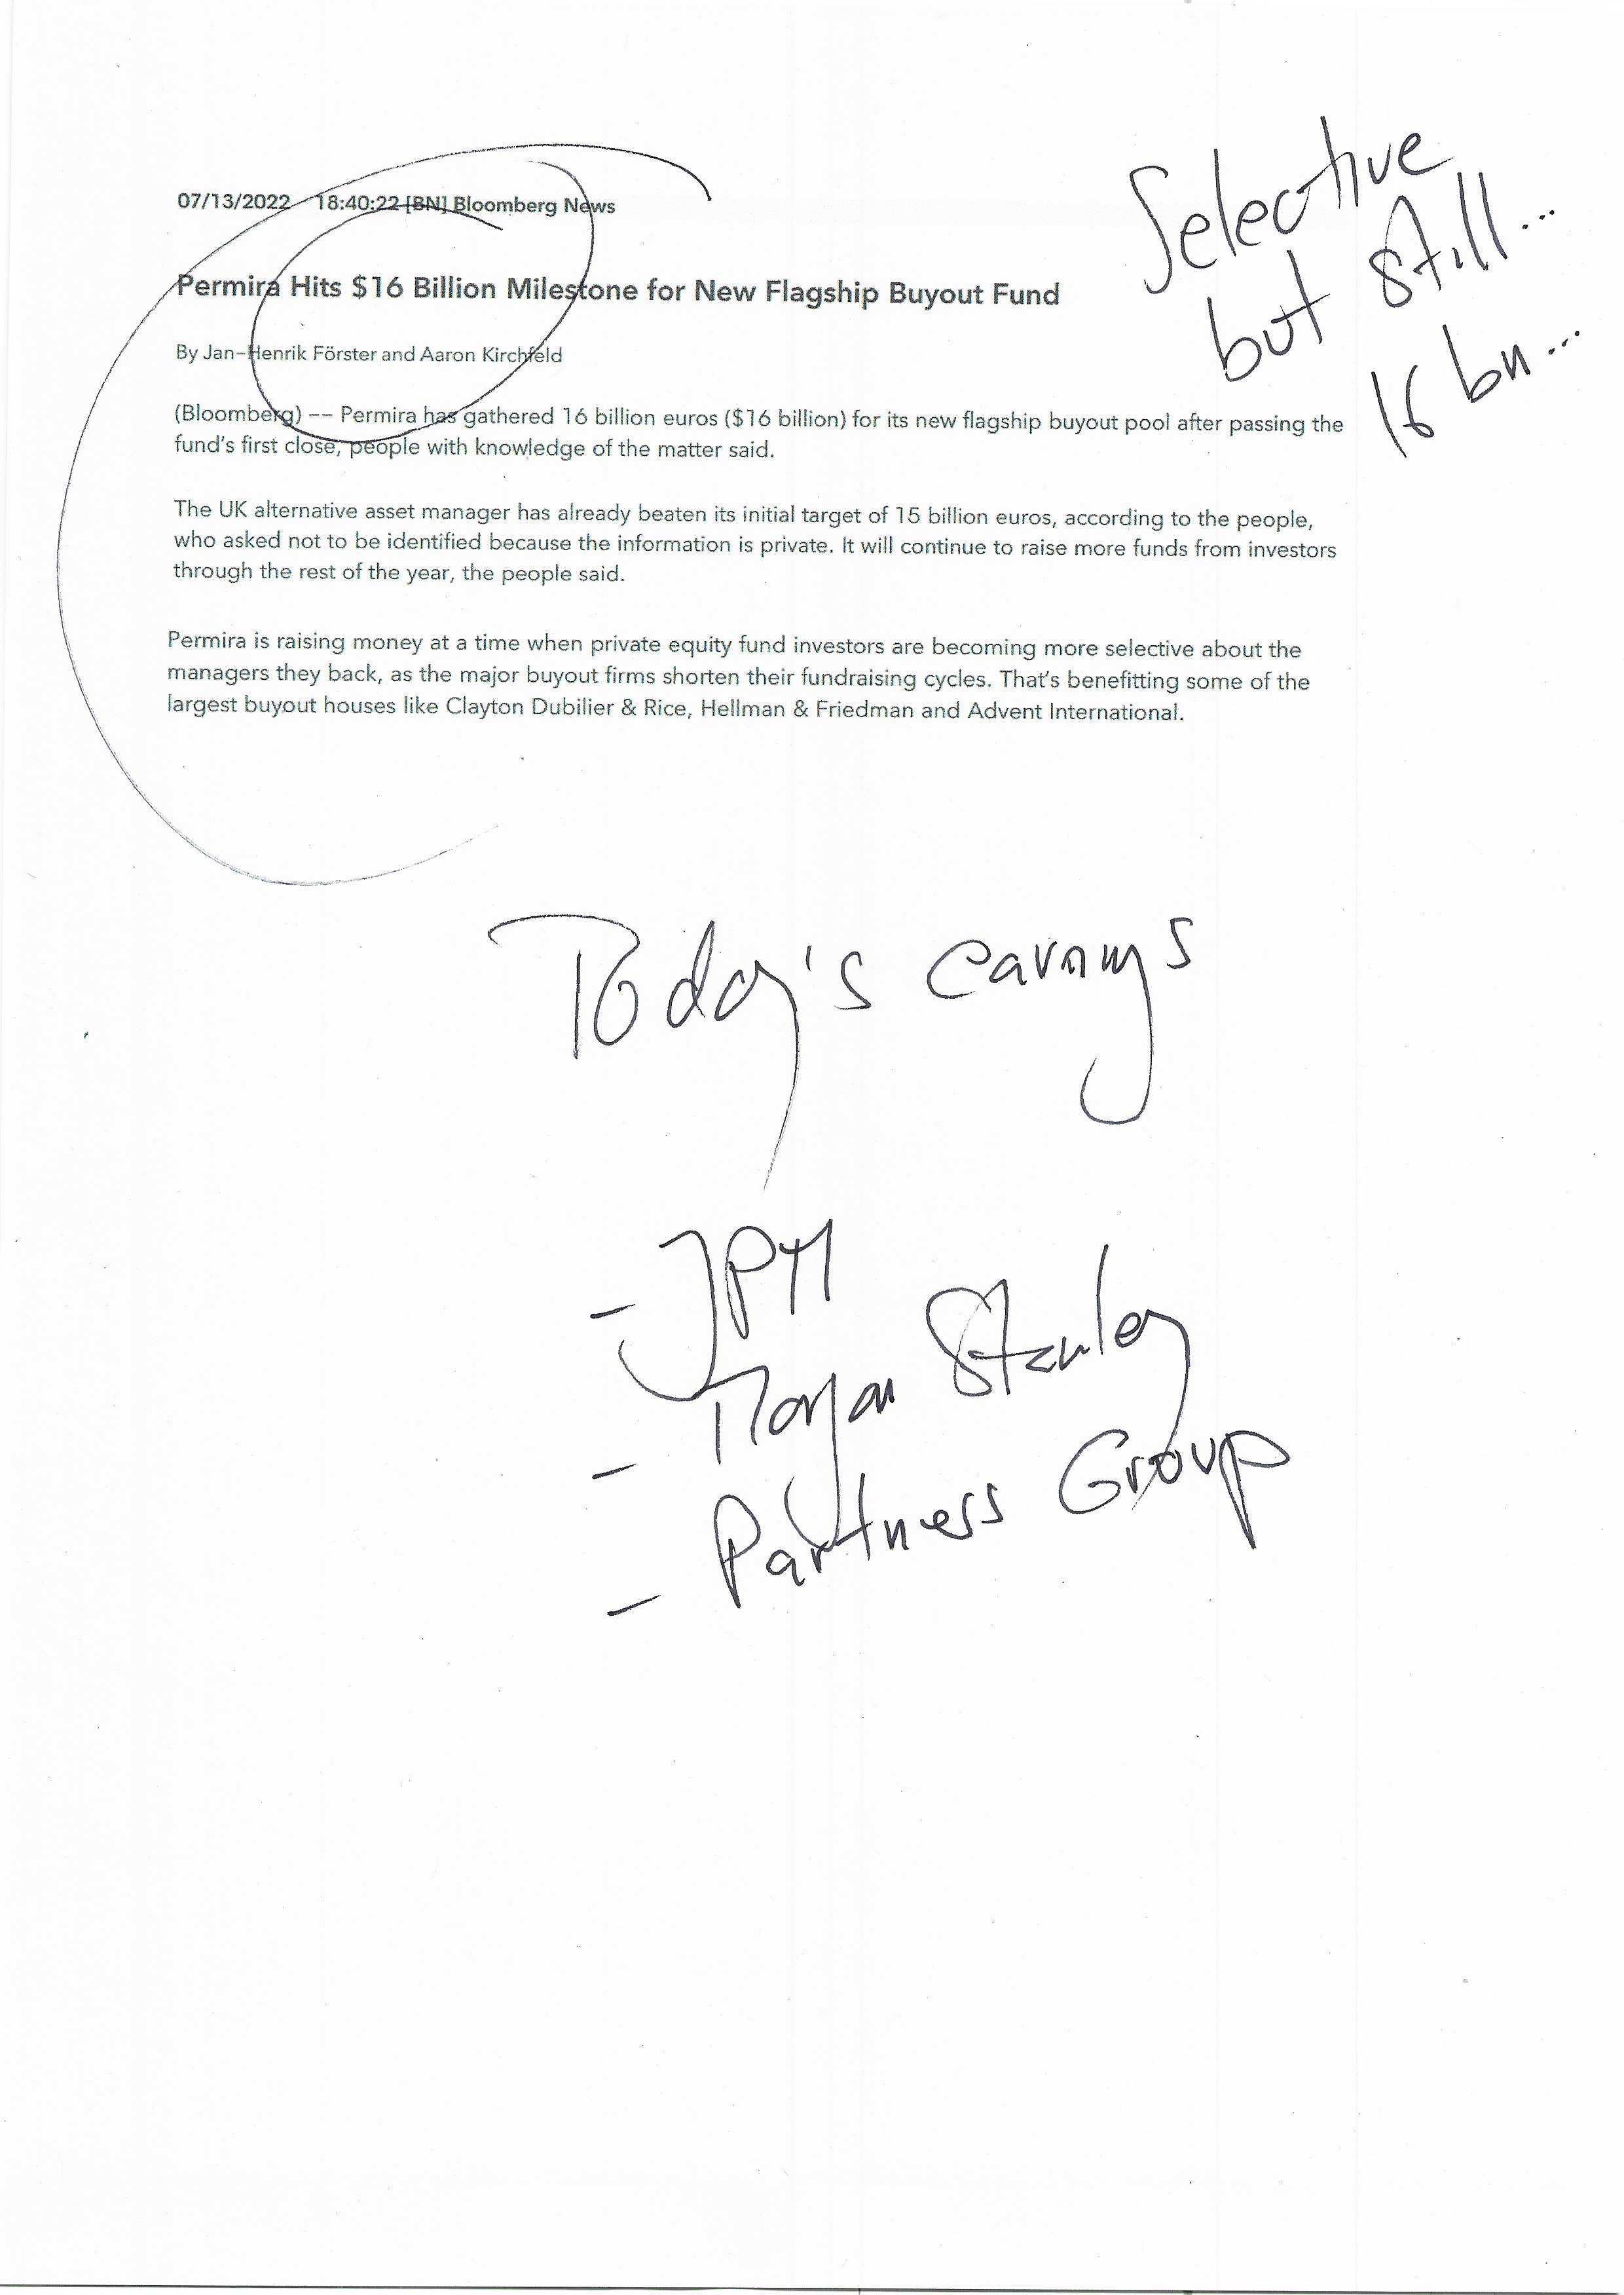 07/13/2022 18:40:22 [BN] Bloomberg News
Selective
but still...
16 bn...
Permira Hits $16 Billion Milestone for New Flagship Buyout Fund
By Jan-Henrik Förster and Aaron Kirchfeld
(Bloomberg) -- Permira has gathered 16 billion euros ($16 billion) for its new flagship buyout pool after passing the
fund's first close, people with knowledge of the matter said.
The UK alternative asset manager has already beaten its initial target of 15 billion euros, according to the people,
who asked not to be identified because the information is private. It will continue to raise more funds from investors
through the rest of the year, the people said.
Permira is raising money at a time when private equity fund investors are becoming more selective about the
managers they back, as the major buyout firms shorten their fundraising cycles. That's benefitting some of the
largest buyout houses like Clayton Dubilier & Rice, Hellman & Friedman and Advent International.
Today's earnings
- JPM
- Morgan Stanley
- Partners Group